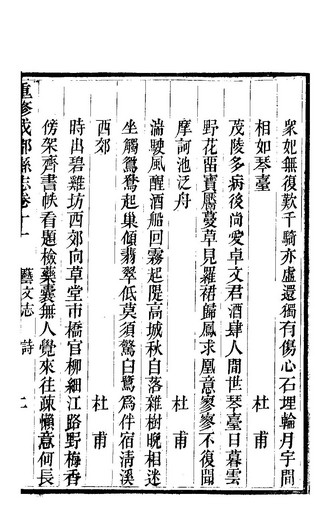 衆妃無復歎千騎亦虛還獨有傷心石埋輪月宇間
相如琴臺　杜甫
茂陵多病後尚愛卓文君酒肆人間世琴臺日暮雲
野花留寶靨蔓草見羅裙歸鳳求凰意寥寥不復聞
摩訶池泛舟　杜甫
湍駛風醒酒船回霧起隄高城秋自落雜樹晚相迷
坐觸鴛鴦起巢傾翡翠低莫須驚白鷺爲伴宿淸溪
西郊　杜甫
時出碧雞坊西郊向草堂市橋官柳細江路野梅香
傍架齊書帙看題檢藥囊無人覺來往疎懶意何長
重修成都縣志卷十一　藝文志　詩　二